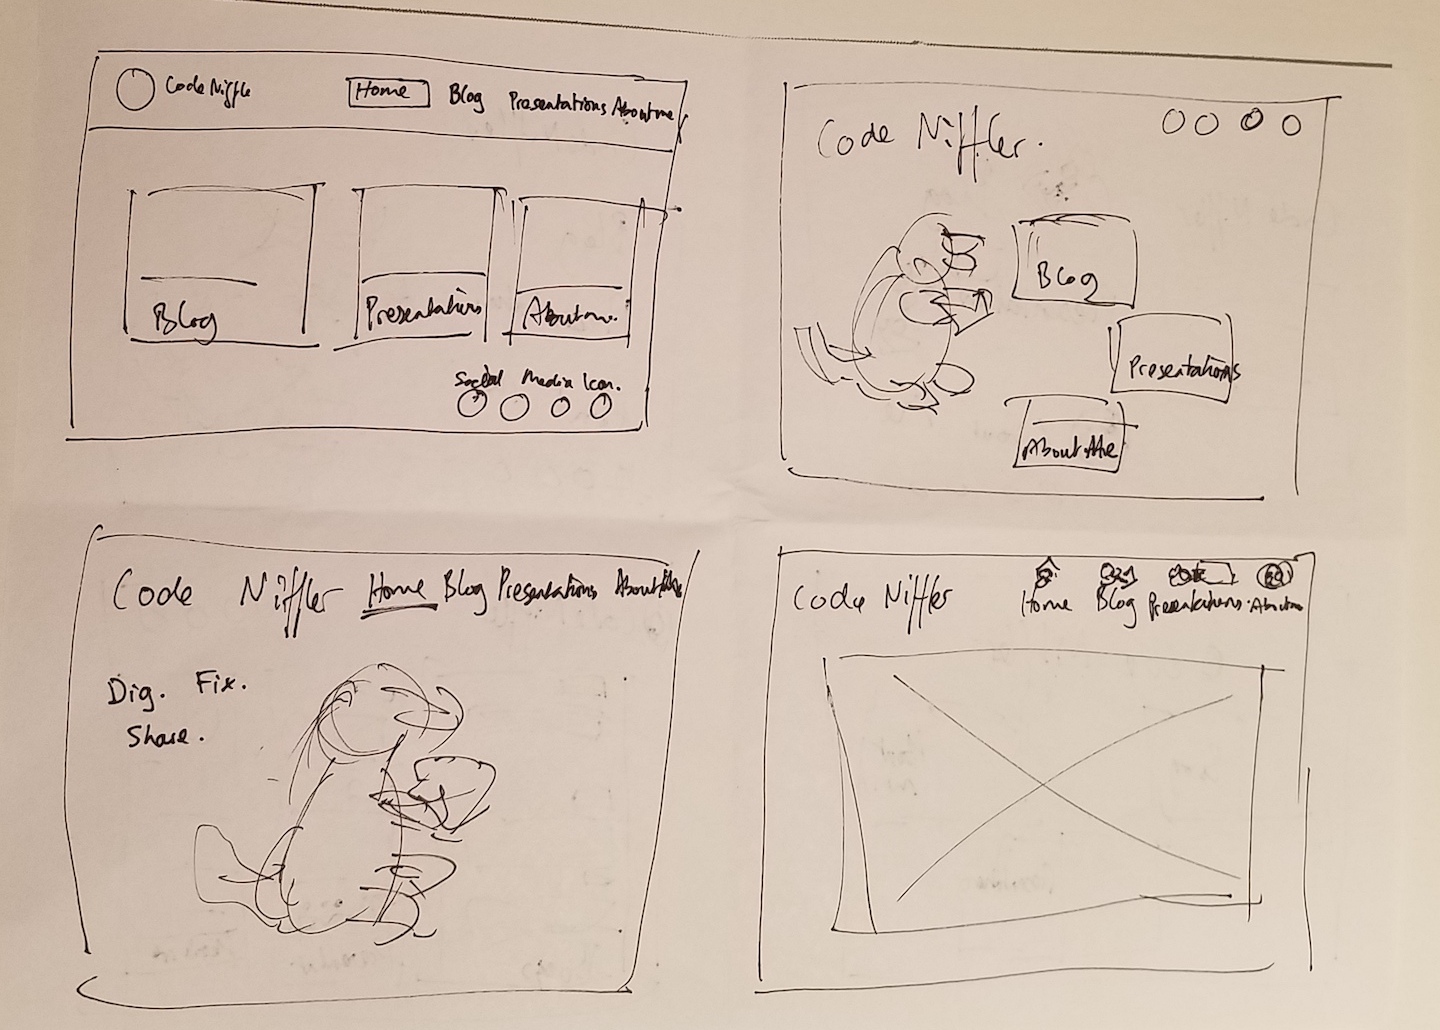 Code Niffle Home Blog Presentations About me
Blog Presentations About me.
Social Media Icon.
Code Niffler.
Blog
Presentations
About Me
Code Niffler Home Blog Presentations About Me
Dig. Fix.
Share.
Code Niffler Home Blog Presentations. About me